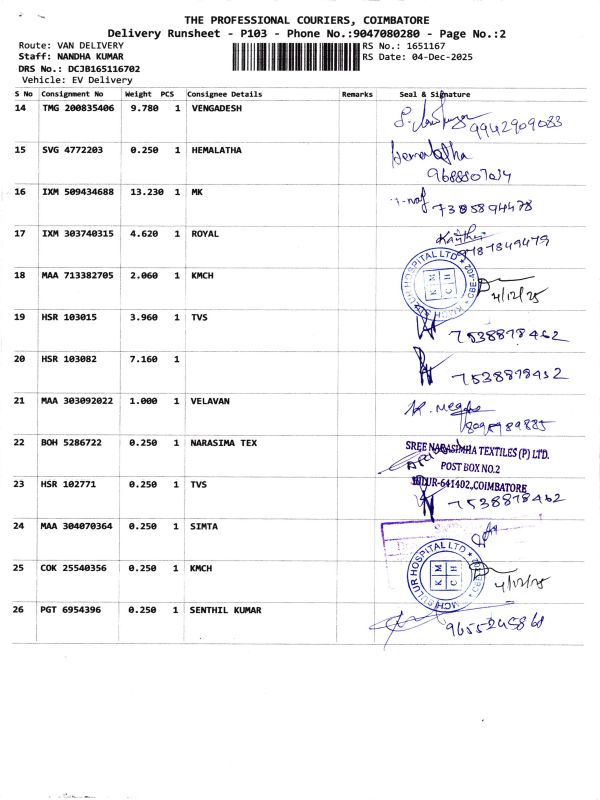 THE PROFESSIONAL COURIERS, COIMBATORE
Delivery Runsheet - P103 - Phone No.:9047080280 - Page No.:2
Route: VAN DELIVERY RS No.: 1651167
Staff: NANDHA KUMAR RS Date: 04-Dec-2025
DRS No.: DCJB165116702
Vehicle: EV Delivery
S No Consignment No Weight PCS Consignee Details Remarks Seal & Signature
14 TMG 200835406 9.780 1 VENGADESH
9942909083
15 SVG 4772203 0.250 1 HEMALATHA Hemalatha
9688807014
16 IXM 509434688 13.230 1 MK
7305894478
17 IXM 303740315 4.620 1 ROYAL
18 MAA 713382705 2.060 1 KMCH SULUR HOSPITAL LTD KMCH
4/12/25
19 HSR 103015 3.960 1 TVS
7538878462
20 HSR 103082 7.160 1
7538878452
21 MAA 303092022 1.000 1 VELAVAN
22 BOH 5286722 0.250 1 NARASIMA TEX SREE NARASIMHA TEXTILES (P) LTD.
POST BOX NO.2
23 HSR 102771 0.250 1 TVS SULUR-641402,COIMBATORE
7538878462
24 MAA 304070364 0.250 1 SIMTA
25 COK 25540356 0.250 1 KMCH SULUR HOSPITAL LTD KMCH
4/12/25
26 PGT 6954396 0.250 1 SENTHIL KUMAR
9655245868